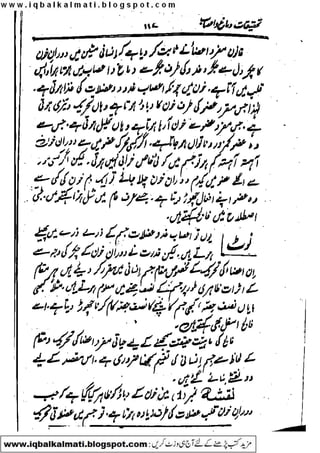 www.iqbalkalmati.blogspot.com
تحقیقات
۱۱۴
قانون مفرد اعضاء نے ثابت کر دیا ہے کہ انسانی مشین میں دوران خون
دل سے جگر و غدد کی طرف جگر سے دماغ و اعصاب میں ہوتا ہوا واپس
قلب میں آتا ہے۔ خون میں چونکہ اعصاب غدد و عضلات کی غذا ہوتی ہے۔
لہذا جس مفرد عضو کی طرف خون کا دباؤ ہوتا ہے وہاں تحریک و تیزی ہوتی
ہے۔ جس مفرد عضو سے خون آ رہا ہوتا ہے وہاں تحلیل ہوتی ہے۔ جس سے
وہ عضو کمزور و ناتواں ہو جاتا ہے۔ اگر کسی محرک عضو میں سے دوران خون
آہستہ آہستہ کم ہو تو جسم میں کوئی خاص خرابی نہیں ہوتی۔ لیکن اگر کسی
سے اگلے عضو میں یکدم دوران خون چلا جائے تو ایک دم خون کی کمی سے
وہ عضو اپنے افعال چھوڑ دیتا ہے۔ جسے عرف عام میں شل ہونا کہتے ہیں۔ طبی
اصطلاح میں فالج کہتے ہیں۔
نوٹ
یوں تو اعصاب غدد و عضلات جسم کے ذرے ذرے میں پھیلے
ہوتے ہیں۔ لیکن قدرت نے دوران خون کے چکر کی وجہ سے
ان اعضاء کی تحریک کے مخصوص مقام جسم انسانی میں مقرر کر دیئے ہیں ہر مقام
کے اثرات ظاہری طور پر جسم کے نصف حصے میں معلوم ہوتے ہیں۔ مثلا کبھی
دایاں نصف حصہ، کبھی جسم کا نیچے کا نصف حصہ کام کرنا چھوڑ دیتا ہے۔ اسے
فالج اسفل بھی کہتے ہیں۔
فالج کی ماہیت حقیقت سمجھنے کے لیے حیاتی مفرد اعضاء کی تحریک و مقام
کے لحاظ سے جسم انسانی کی تقسیم سمجھنا ضروری ہے۔ اس مقصد کے لیے
دو نقشے بنائے گئے ہیں۔
نقشہ نمبر (۱) میں خون کے دباؤ کو ظاہر کیا گیا ہے کہ جب
دوران خون قلب عضلات کی طرف زیادہ ہوتا ہے۔ تو جسم میں عضلاتی تحریک
www.iqbalkalmati.blogspot.com مزید کتب پڑھنے کے لئے آج ہی وزٹ کریں :